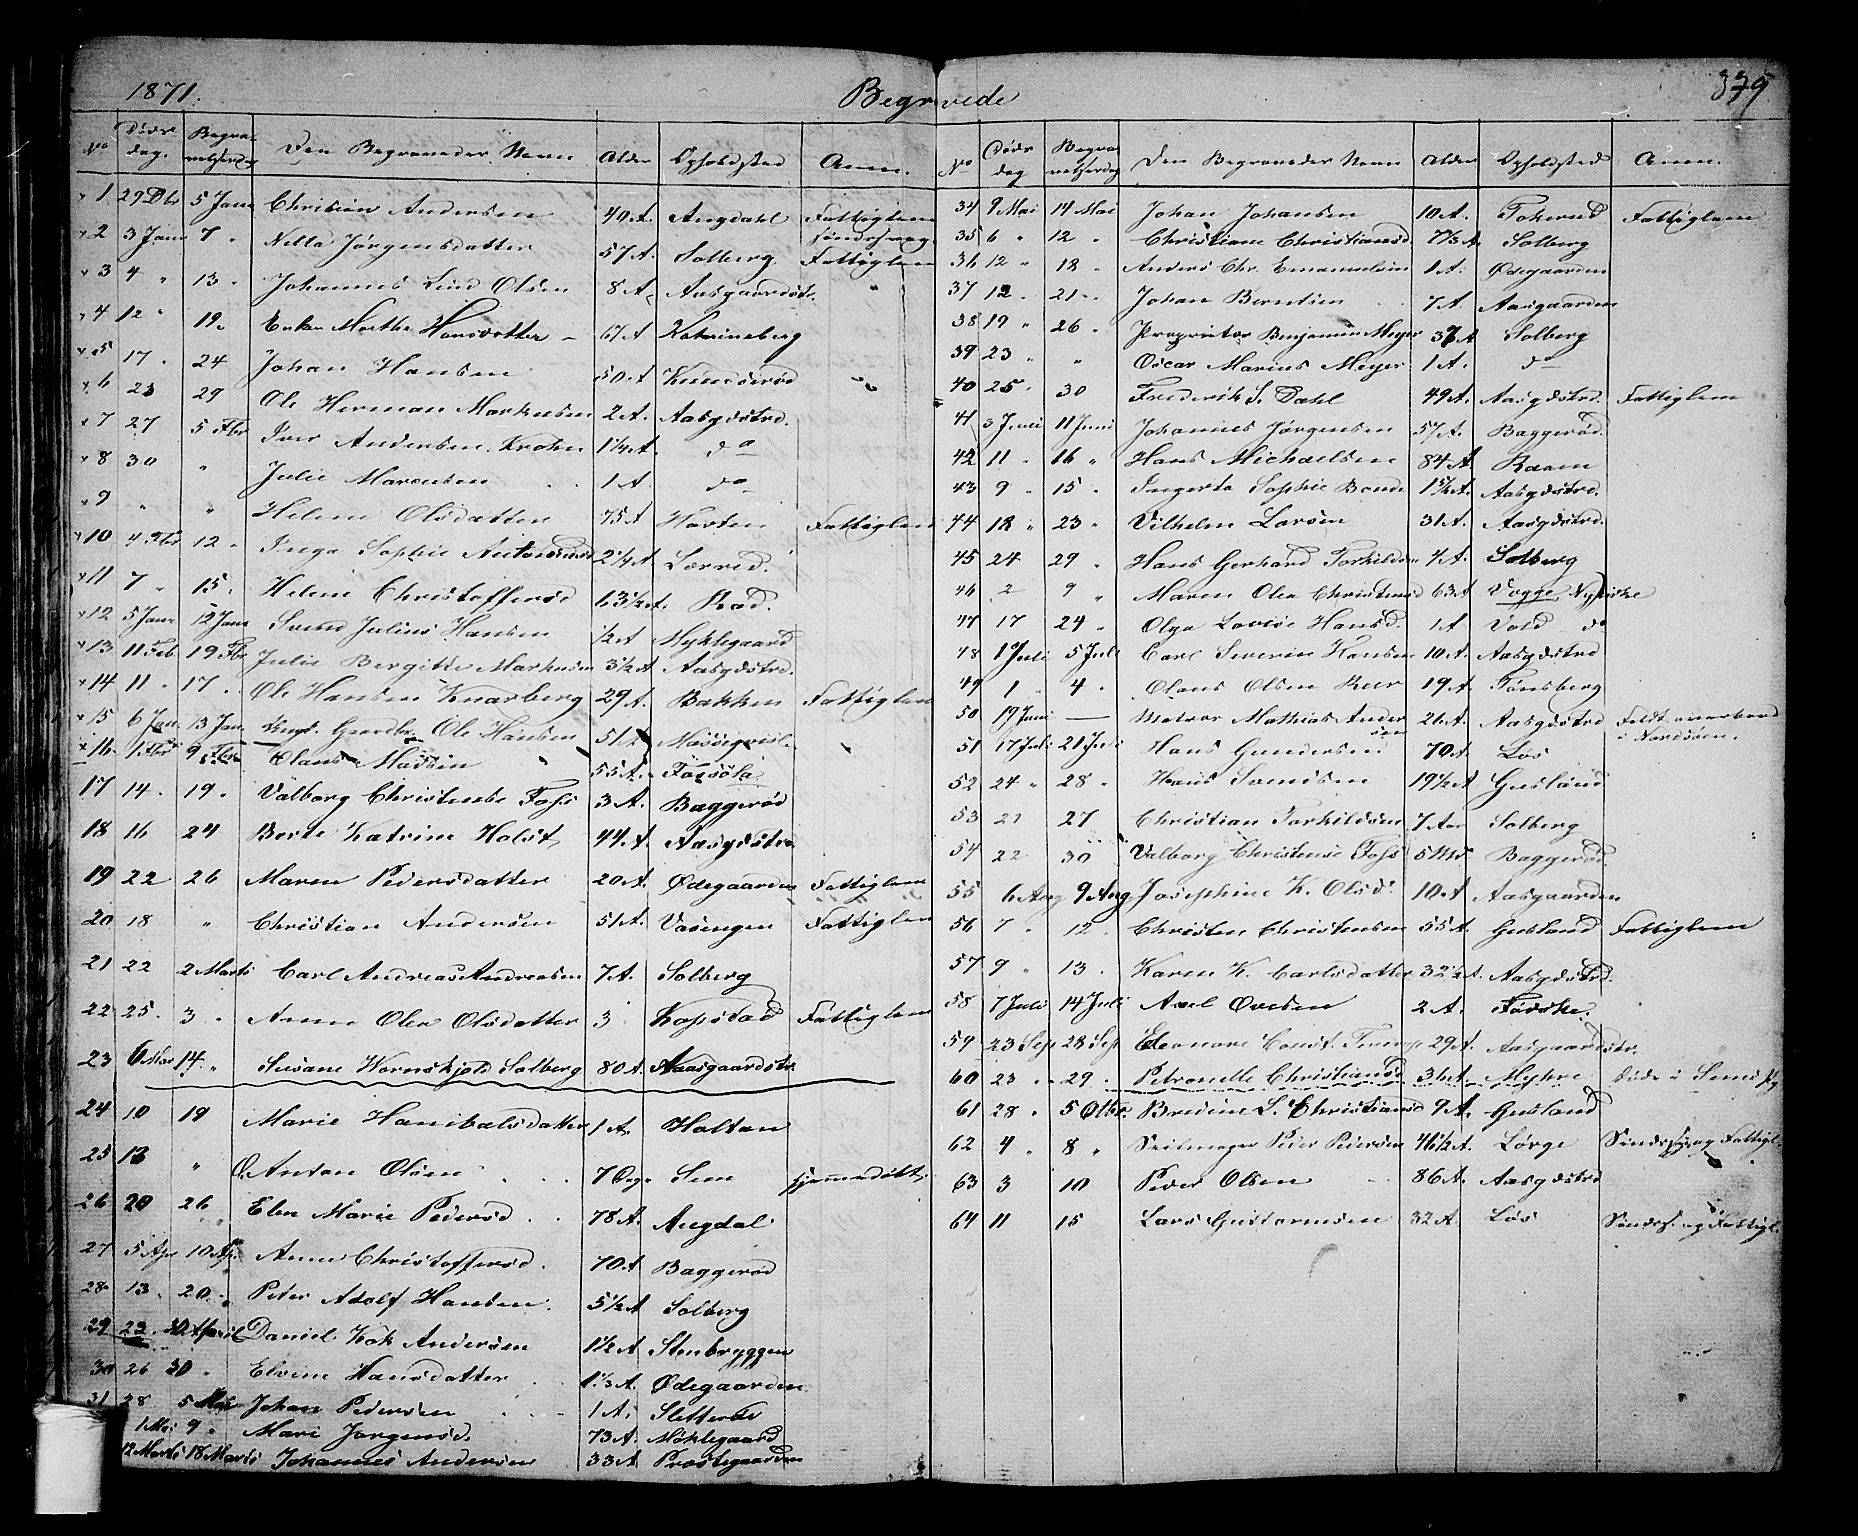 1871. Begravede 379
No Døds dag. Begra- velsesdag Den Begravedes Navn Alder Opholdsted Anm.
1 29 Dbr 5 Janr Christian Andersen 40 A. Augdahl Fattiglem
2 3 Janr 7 " Nella Jørgensdatter 57 A. Solberg Fattiglem
3 4 " 13 " Johannes Lind Olsen 8 A. Aasgaardstr. "
4 12 " 19 " Enken Marthe Hansdatter 67 A Kathrineberg
5 17 " 24 Johan Hansen 50 A. "
6 23 29 Ole Herman Markusen 2 A. Aasgdstrd.
7 27 5 Fbr Iver Andersen Krohn 1 1/4 A do
8 30 " Julie Marcusen 1 A. do
9 " " Helene Olsdatter 75 A Horten Fattiglem
10 4 Fbr 12 " Inga Sophie 2 1/4 A.
11 7 " 15. Helene Christoffersd 63 1/2 A. Rød.
12 5 Janr 12 Janr Svend Julius Hansen 1/2 A Myklegaard
13 11 Feb. 19 Fbr Julie Bergitte Markusen 3 1/2 A. Aasgdstrd.
14 11 " 17 " Ole Hansen Knarberg 29 A. Bakken Fattiglem
15 6 Jan. 13 Jan Ole Hansen "
16 1 Fbr 9 Fbr Olaus Madsen 55 A.
17 14 " 19 " Valborg Christense Foss 3 A. Baggerød
18 16 24 Berte Katrine Holst 44 A. Aasgdstrd.
19 22 26 Maren Pedersdatter 20 A. Ødegaarden Fattiglem
20 18 " Christian Andersen 51 A. Vasengen Fattiglem
21 22 2 Marts Carl Andreas Andreasen 7 A. Solberg
22 25. 3 " Anne Olea Olsdatter 3 Kopstad Fattiglem
23 6 Mar 14 " Susane Wornskjold Solberg 80 A. Aasgaardstr.
24 10 19 Marie Hanibalsdatter 1 A. Holtan
25 13 " Anton Olsen 7 Dge Sem hjemmedøbt
26 20 26 Elen Marie Pedersd. 78 A. Augdal
27 5 Apr 10 Ap. Anne Christoffersd. 70 A Baggerød
28 13 " 20 " Peter Adolf Hansen. 5 1/2 A Solberg
29 23 " 30 April Daniel Kok Andersen 1 1/2 A Stenbryggen
30 26 30 " Elvine Hansdatter 1 1/3 A. Ødegaarden
31 28 5 Mai Johan Pedersen 1 A. Sletterød
1 Mai 9 " Mari Jørgensd. 73 A. Møklegaard
12 Marts 18 Marts Johannes Andersen 33 A Præstegaarden
No Døds dag Begra- velsesdag Den Begravedes Navn Alder Opholdsted Anm.
34 9 Mai 14 Mai Johan Johansen 10 A. Tokerud Fattiglem
35 6 " 12 " Christiane Christiansd. 7 1/3 A. Solberg
36 12 " 18 " Anders Chr. Emanuelsen 1 A. Ødegaarden
37 12 " 21 " Johan Berntsen 7 A Aasgaarden
38 19 " 26 " Proprietær Benjamin Meyer 37 A Solberg
39 23 " " Oscar Marius Meyer 1 A. do
40 25 " 30 Frederik S. Dahl 49 A. Aasgdstrd. Fattiglem
41 3 Juni 11 Juni Johannes Jørgensen 57 A. Baggerød.
42 11 " 16 " Hans Michaelsen 84 A. Raaen
43 9 " 15 " Ingerta Sophie Bende 1 1/2 A. Aasgdstrd.
44 18 " 23 " Vilhelm Larsen 31 A. Aasgdstrd.
45 24 29 " Hans Gerhard Torkildsen 4 A. Solberg
46 2 9 " Maren Olea Christensd 63 A Vogge, Nykirke
47 17 24 " Olga Lovise Hansd. 1 A Vold do
48 1 Juli 5 Juli Carl Severin Hansen 10 A. Aasgdstrd
49 1 " 4 " Olaus Olsen 19 A Tønsberg
50 19 Juni — Matros Mathias Andersen 26 A. Aasgdstrd Faldt overbord i Nordsøen.
51 17 Juli 21 Juli Hans Gundersen 70 A. Løs
52 24 " 28 " Hans Svendsen 19 1/2 A. Gusland
53 21 27 Christian Torkildsen 7 Aar Solberg
54 22 30 Valborg Christense Foss 5 Md Baggerød
55 6 Aug 9 Aug Josephine K. Olsd. 10 A. Aasgaarden
56 7 " 12 " Christen Christensen 55 A. Gusland Fattiglem
57 9 " 13 . Karen K. Carlsdatter 32 1/2 A. Aasgdstrd.
58 7 Juli 14 Juli Axel Ovesen 2 A.
59 23 Sep 28 Sept Eleonore Const. 29 A. Aasgaardstr.
60 23 " 29 . Petronelle Christiansd 36 A. Myhre Døde i Sindssyg
61 28 " 5 Octbr. Bredine L. Christiansd 9 A. Gusland
62 4 " 8 " Seilmager Peder Pedersen 46 1/2 A. Lørge Sindssyg og Fattigl.
63 3 10 Peder Olsen 86 A. Aasgdstrd
64 11 15 Lars Guttormsen 32 A. Løs Sindss. og Fattigl.